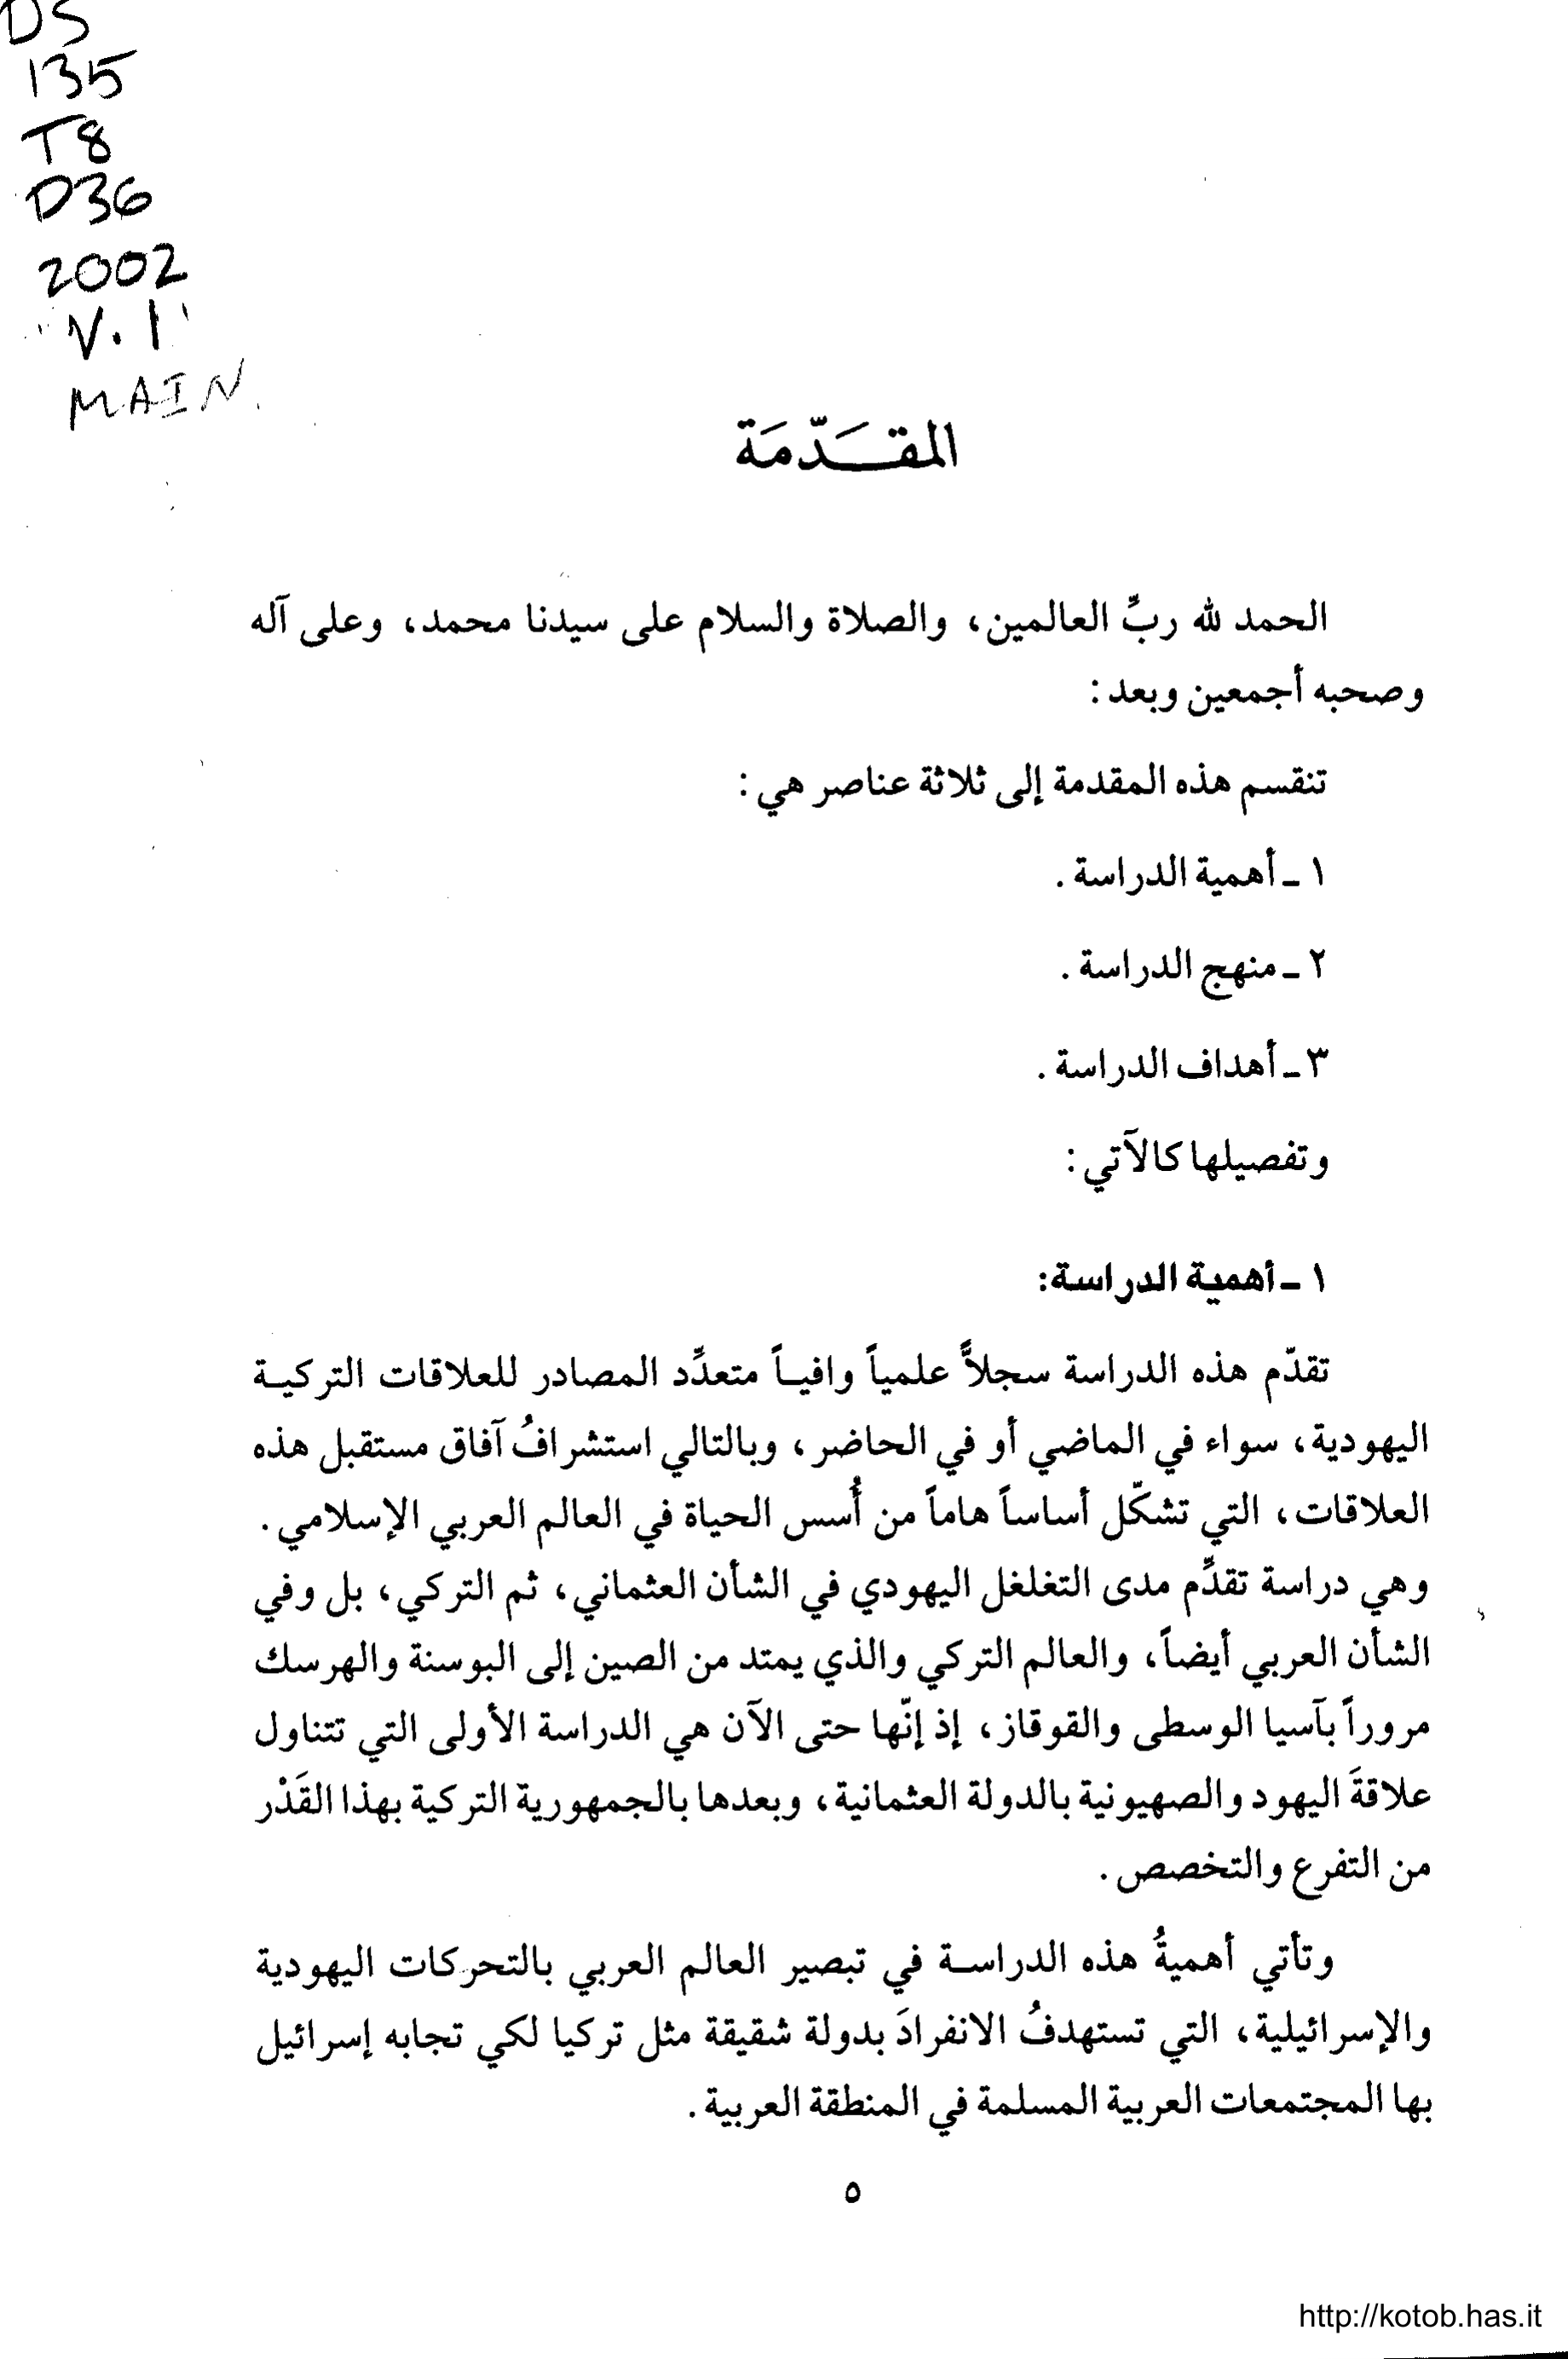 DS
135
T8
D36
2002
V. 1
MAIN
المقَدّمَة
الحمد لله ربِّ العالمين، والصلاة والسلام على سيدنا محمد، وعلى آله
وصحبه أجمعين وبعد:
تنقسم هذه المقدمة إلى ثلاثة عناصر هي:
١ ـ أهمية الدراسة.
٢ ـ منهج الدراسة.
٣ ـ أهداف الدراسة.
وتفصيلها كالآتي:
١ ـ أهمية الدراسة:
تقدّم هذه الدراسة سجلاًّ علمياً وافياً متعدِّد المصادر للعلاقات التركية
اليهودية، سواء في الماضي أو في الحاضر، وبالتالي استشرافُ آفاق مستقبل هذه
العلاقات، التي تشكّل أساساً هاماً من أُسس الحياة في العالم العربي الإسلامي.
وهي دراسة تقدِّم مدى التغلغل اليهودي في الشأن العثماني، ثم التركي، بل وفي
الشأن العربي أيضاً، والعالم التركي والذي يمتد من الصين إلى البوسنة والهرسك
مروراً بآسيا الوسطى والقوقاز، إذ إنّها حتى الآن هي الدراسة الأولى التي تتناول
علاقةَ اليهود والصهيونية بالدولة العثمانية، وبعدها بالجمهورية التركية بهذا القَدْر
من التفرع والتخصص.
وتأتي أهميةُ هذه الدراسة في تبصير العالم العربي بالتحركات اليهودية
والإسرائيلية، التي تستهدفُ الانفرادَ بدولة شقيقة مثل تركيا لكي تجابه إسرائيل
بها المجتمعات العربية المسلمة في المنطقة العربية.
٥
http://kotob.has.it